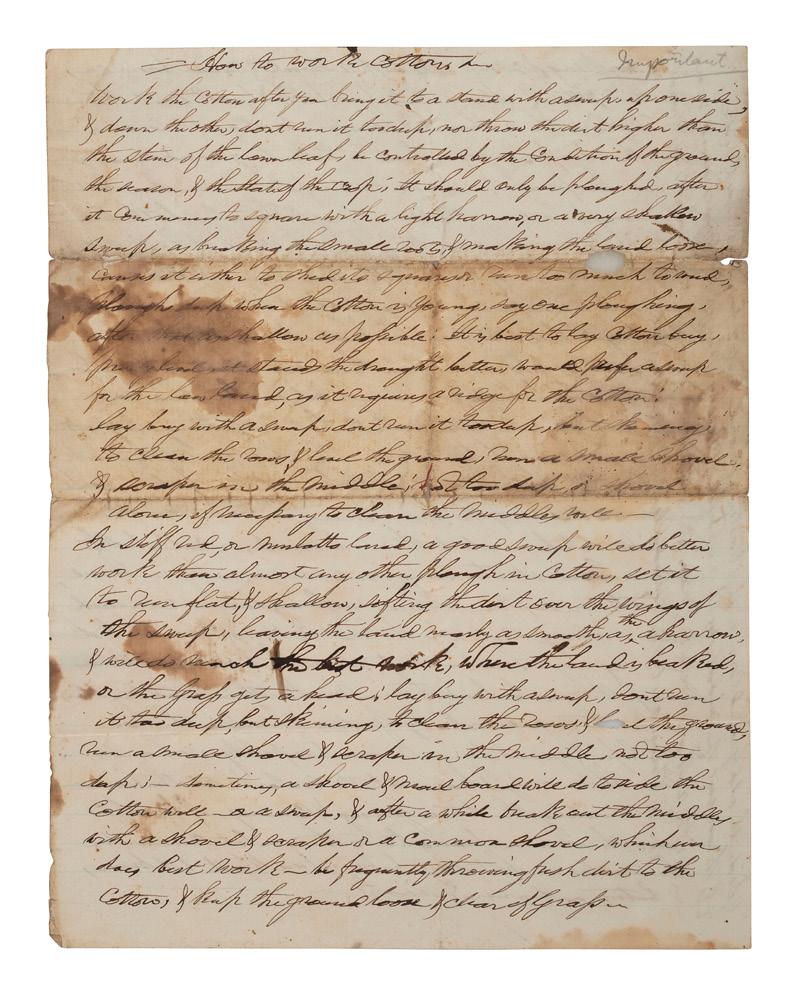 How to work Cotton
Important
Work the Cotton after you bring it to a stand with a sweep, up one side,
& down the other, dont run it too deep, nor throw the dirt higher than
the stem of the lawn leaf, be controlled by the Condition of the ground,
the season, & the State of the Crop; It should only be ploughed, after
it Commences to square with a light harrow, or a very shallow
sweep, as breaking the small roots, & making the land loose,
causes it either to shed its squares or run too much to weed,
plough deep when the Cotton is Young, say one ploughing,
after that as shallow as possible; It is best to lay Cotton buy,
land it stands the draught better, would prefer a sweep
for the low land, as it requires a ridge for the Cotton;
lay buy with a sweep, dont run it too deep, but skiming,
to clean the rows & level the ground, run a small shovel
& scraper in the middle; not too deep a shovel
alone, if necessary to clean the Middles well —
In stiff red, or mulatto land, a good sweep will do better
work than almost any other plough in Cotton, set it
to run flat, & shallow, sifting the dirt over the wings of
the sweep, leaving the land nearly as smooth, as the a harrow,
& will do much the best work, When the land is beaked,
or the Grass gets a head; lay buy with a sweep, dont run
it too deep, but skiming, to clean the rows & the ground,
run a small shovel & scraper in the middle not too
deep; — sometimes, a shovel & moud board will do to side the
Cotton well — or a sweep, & after a while break out the Middles
with a shovel & scraper or a common shovel, whichever
does best work — be frequently throwing fresh dirt to the
Cotton, & keep the ground loose & clear of Grass —